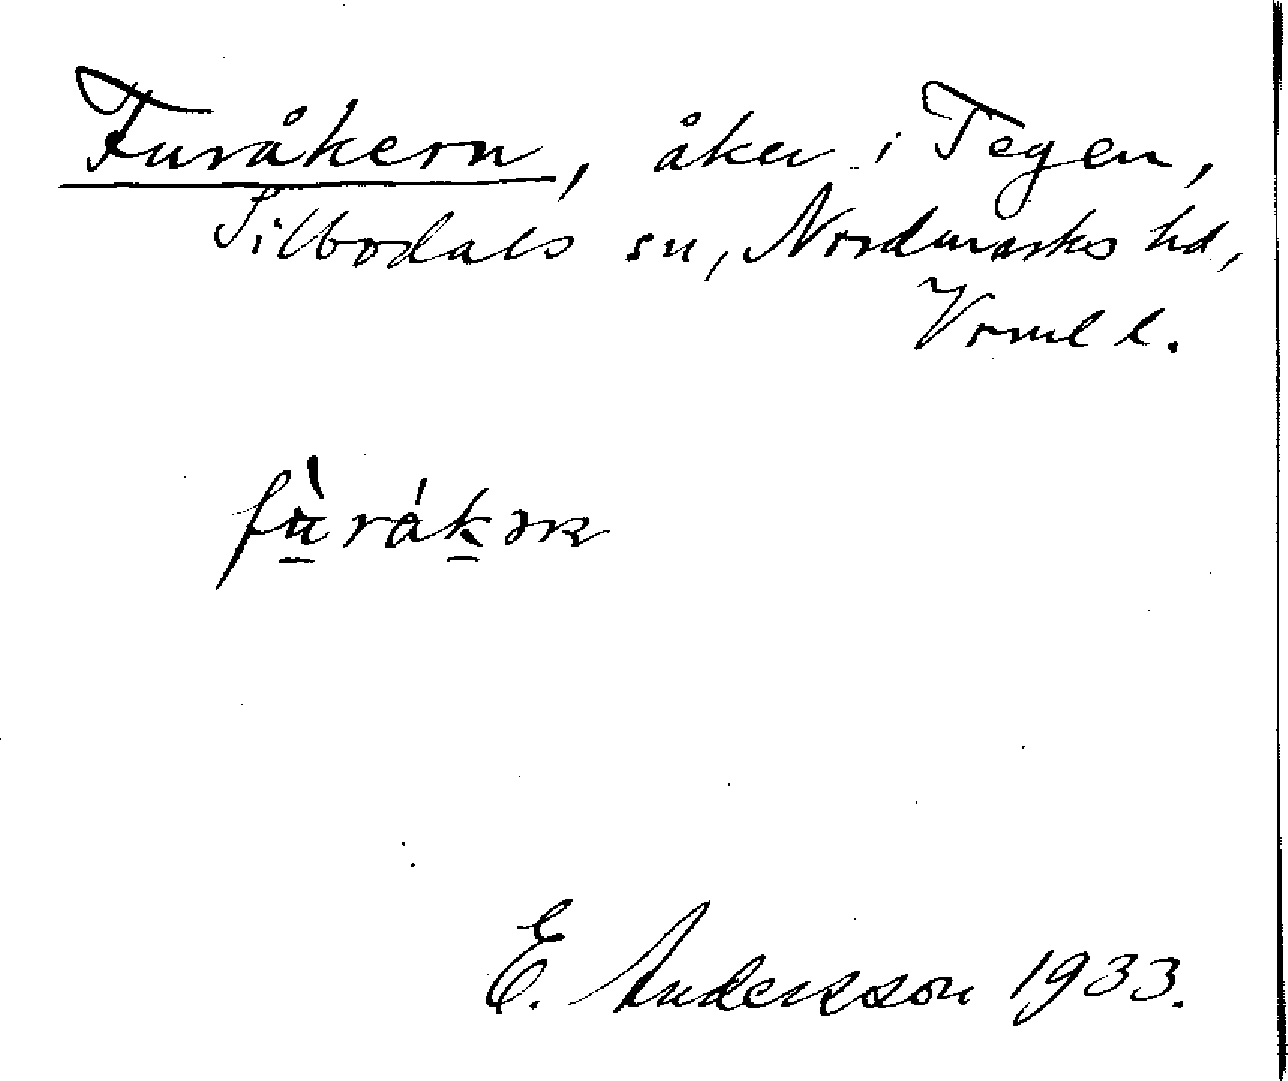 Furåkern, åker i Tegen,
Silbodals sn, Nordmarks hd,
Vrml l.
fu̱̇̀råḵən
E. Andersson 1933.